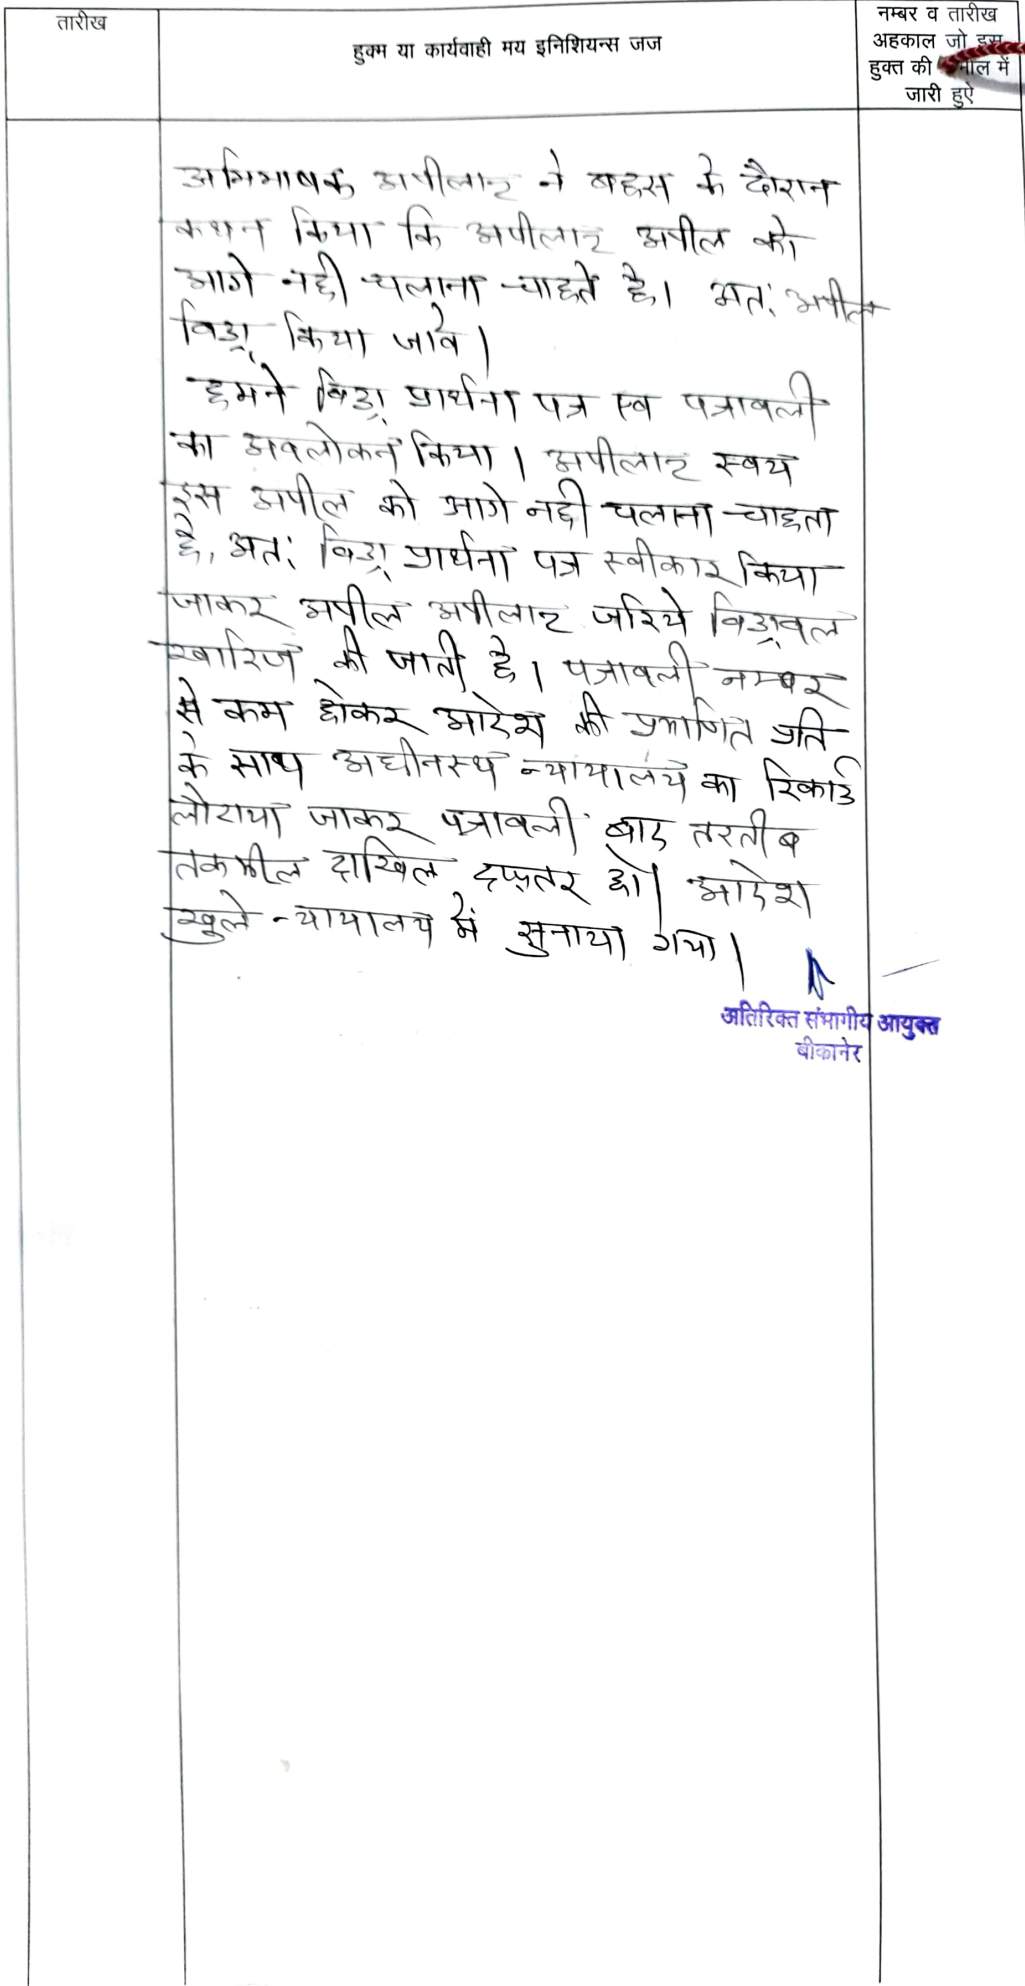 तारीख
हुक्म या कार्यवाही मय इनिशियन्स जज
नम्बर व तारीख
अहकाल जो इस
हुक्त की मील में
जारी हुऐ
अभिभाषक अपीलान्ट ने बहस के दौरान
कथन किया कि अपीलान्ट अपील को
आगे नही चलाना चाहते है। अतः अपील
विड्रा किया जावे।
हमने विड्रा प्रार्थना पत्र एवं पत्रावली
का अवलोकन किया। अपीलान्ट स्वयं
इस अपील को आगे नही चलाना चाहता
है, अतः विड्रा प्रार्थना पत्र स्वीकार किया
जाकर अपील अपीलान्ट जरिये विड्रावल
खारिज की जाती है। पत्रावली नम्बर
से कम होकर आदेश की प्रमाणित प्रति
के साथ अधीनस्थ न्यायालय का रिकार्ड
लौटाया जाकर पत्रावली बाद तरतीब
तकमील दाखिल दफ्तर हो। आदेश
खुले न्यायालय में सुनाया गया।
अतिरिक्त संभागीय आयुक्त
बीकानेर